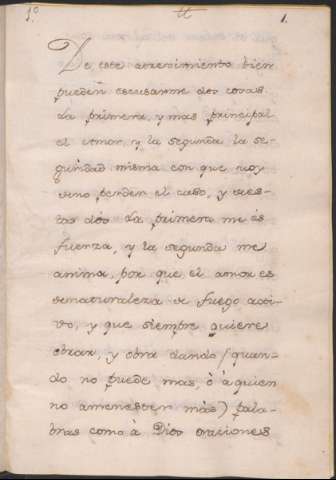 1.
De este atrevimiento bien
pueden escusarme dos cosas
La primera, y mas principal
el amor, y la segunda la se-
guridad misma con que voy
sino perder el caso, y de es-
tas dós La primera me és
fuerza, y la segunda me
anima, por que el amor es
de naturaleza de fuego acti-
vo, y que siempre quiere
obrar, y obra dando (quan-
do no puede mas, ò à quien
no amenester màs) pala-
bras como à Dios oraciones